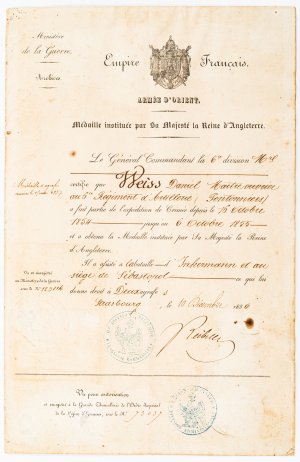 Ministère
de la Guerre.
Archives.
Empire Français.
ARMÉE D'ORIENT.
Médaille instituée par Sa Majesté la Reine d'Angleterre.
Le Général Commandant la 6e division Mre
certifie que Weiss Daniel Maitre ouvrier
au 6e Régiment d'Artillerie, (Pontonniers)
a fait partie de l'expédition de Crimée depuis le 15 octobre
1854 jusqu'au 6 Octobre 1855
et a obtenu la Médaille instituée par Sa Majesté la Reine
d'Angleterre.
Il a assisté à la bataille d'Inkermann et au
siège de Sébastopol ce qui lui
donne droit à Deux agrafes
Strasbourg, le 10 Décembre 1856
Médaille
Vu et enregistré
au Ministère de la Guerre
sous le No
Vu pour autorisation
et enregistré à la Grande Chancellerie de l'Ordre Impérial
de la Légion d'Honneur, sous le No 73037